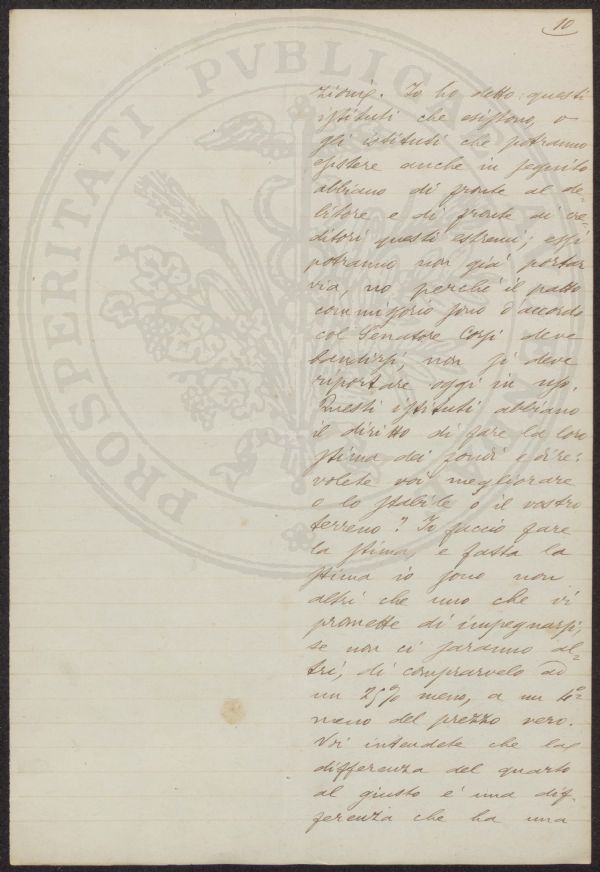 10
zione. Io ho detto: questi
istituti che esistono, o
gli istituti che potranno
esistere anche in seguito
abbiano di fronte al de-
bitore e di fronte di cre-
ditori questi estremi; essi
potranno non già portar
via, no perché il patto
commissorio sono d'accordo
col Senatore Corsi deve
bandirsi, non si deve
riportare oggi in uso.
Questi istituti abbiano
il diritto di fare la loro
stima dei fondi e dire:
volete voi megliorare
o lo stabile o il vostro
terreno? Io faccio fare
la stima, e fatta la
stima io sono non
altri che uno che vi
promette di impegnarsi,
se non ci saranno al-
tri, di comprarvelo ad
un 25% meno, a un 4º
meno del prezzo vero.
Voi intendete che la
differenza del quarto
al giusto é una dif
ferenza che ha una
PROSPERITATI PVBLICAE